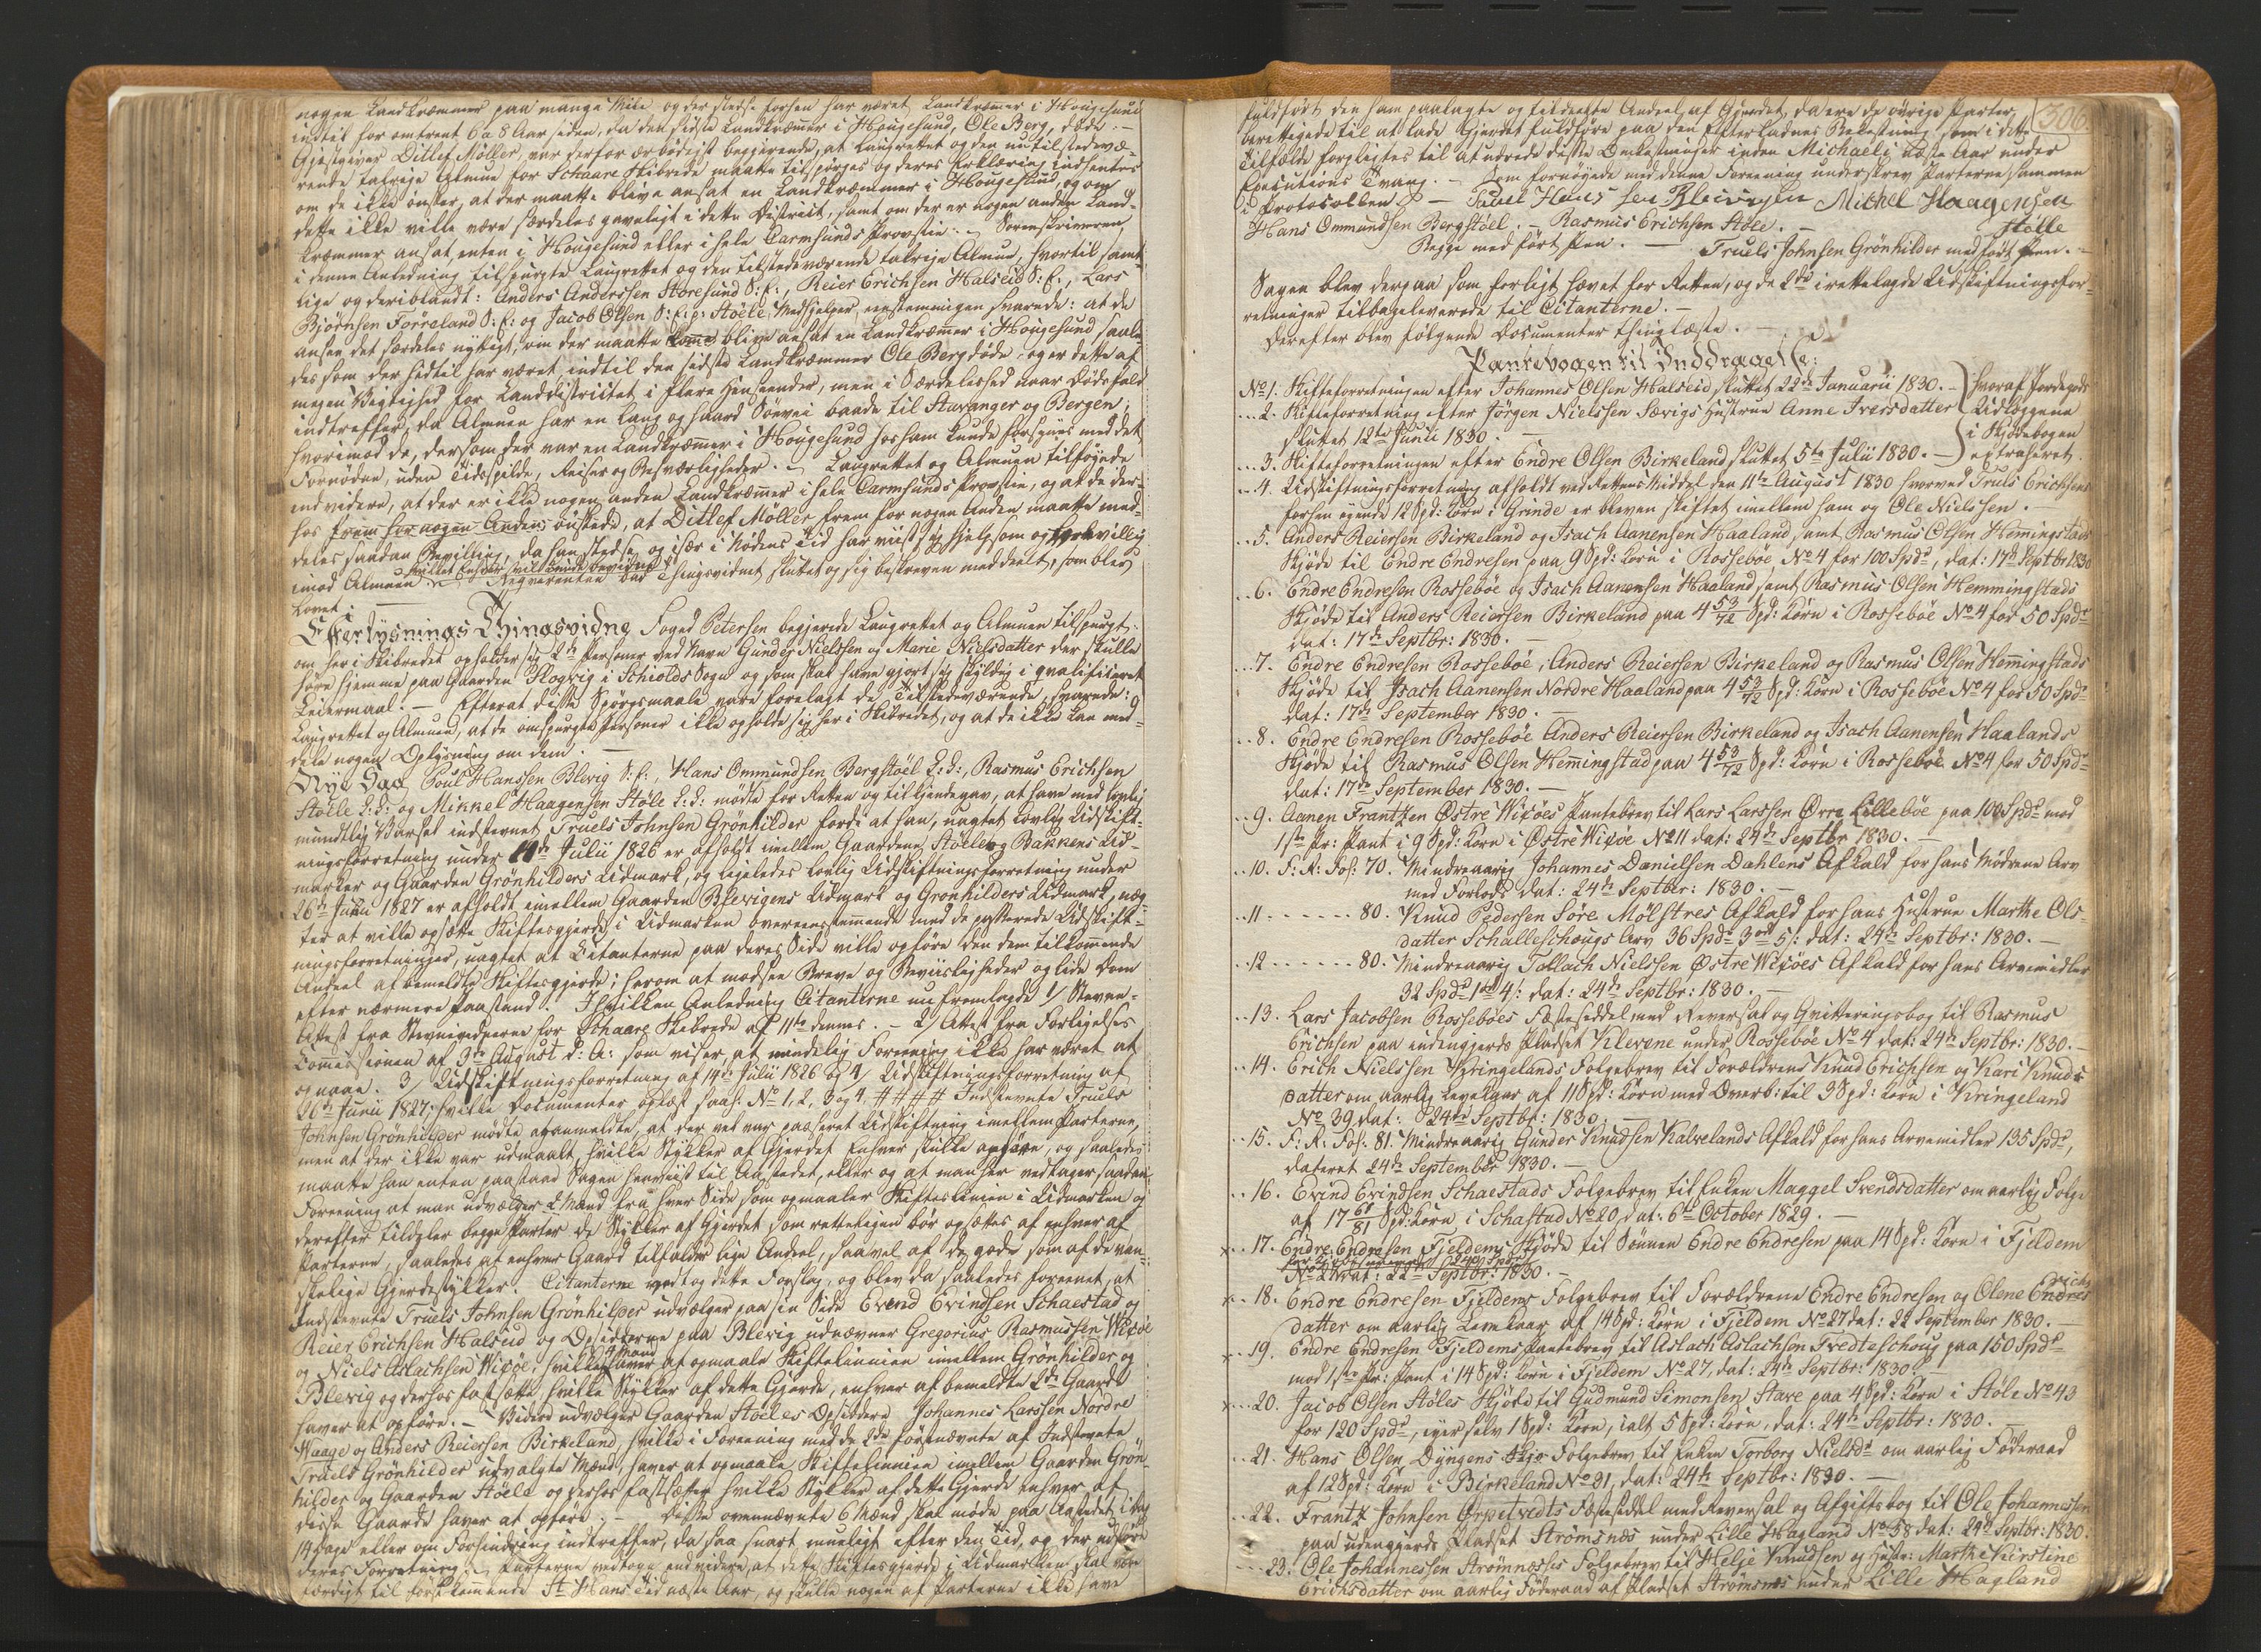 nogen Landkræmmer paa mange Mile og der stedse forhen har været Landkræmer i Hougesund
indtil for omtrent 6 a 8 Aar siden, da den sidste Landkræmer i Hougesund, Ole Berg, døde. —
Gjestgiver Ditlef Møller, var derfor ærbødigst begjerende, at Laugrettet og den nu tilstedevæ-
rende talrige Almue for Schaare Skibrede maatte tilspørges og deres Erklæring indhentes
om de ikke ønsker, at der maatte blive ansat en Landkræmmer i Hougesund, og om
dette ikke ville være særdeles gavnligt i dette District, samt om der er nogen anden Land-
kræmmer ansat enten i Hougesund eller i hele Carmsunds Provstie. — Sorenskriveren
i denne Anledning tilspurgte Laugrettet og den tilstedeværende talrige Almue, hvortil samt-
lige og deriblandt: Anders Anderssen Storesund S:f:, Reier Erichsen Halseid S:f:, Lars
Bjørnsen Førreland S:f: og Jacob Olsen S:f: p: Støele, Medhjelper eenstemmigen svarede: at de
anser det særdeles nyttigt, om der maatte blive ansat en Landkræmer i Hougesund saale-
des som der hidtil har været indtil den sidste Landkræmmer Ole Berg døde, og er dette af
megen Vigtighed for Landdistrictet i flere Henseender, men i Særdeleshed naar Dødsfald
indtreffer, da Almuen har en lang og haard Søevei baade til Stavanger og Bergen;
hvorimod de, dersom der var en Landkræmer i Hougesund hos ham kunde forsynes med det
Fornødne, uden Tidsspilde, Reiser og Besværligheder. — Laugrettet og Almuen tilføyede
endvidere, at der er ikke nogen anden Landkræmer i hele Carmsunds Provstie, og at de der-
hos frem for nogen Anden ønskede, at Ditlef Møller frem for nogen Anden maatte med-
deles saadan Bevilling, da han stedse og især i Nødens Tid har viist sig hjelpsom og velvillig
imod Almuen — hvilket Enhver vil kunde bevidne. Reqvirenten bad Thingsvidnet sluttet og sig beskreven meddeelt, som blev
Lovet. —
Efterlysnings Thingsvidne Foged Petersen begjerede Laugrettet og Almuen tilspurgt:
om her i Skibredet opholder sig 2de Personer ved Navn Gunder Nielssen og Marie Nielsdatter der skulle
høre hjemme paa Gaarden Slogvig i Schiolds Sogn og som skal have gjort sig skyldig i qvalificeret
Leiermaal. — Efterat disse Spørgsmaale vare forelagt de Tilstedeværende, svarede:
Laugrettet og Almuen, at de omspurgte Personer ikke opholde sig her i Skibredet, og at de ikke kan med-
dele nogen Oplysning om dem. —
Nye Sag Poul Hanssen Blevig S:f:, Hans Ommundsen Bergstøel L:d:, Rasmus Erichsen
Støele L:d: og Mikkel Haagensen Støle L:d: mødte for Retten og tilkjendegav, at have med lovlig
mundtlig Varsel indstevnet Truels Johnsen Grønhilder fordi at han, uagtet lovlig Udskift-
ningsforretning under 14de Julii 1826 er afholdt imellem Gaardene Støele og Bakkens Ud-
marker og Gaarden Grønhilders Udmark, og ligeledes lovlig Udskiftningsforretning under
26de Junii 1827 er afholdt imellem Gaarden Blevigens Udmark og Grønhilders Udmark, næg-
ter at ville opsette Skiftesgjerde i Udmarken overeensstemmende med de passerede Udskift-
ningsforretninger, uagtet at Citanterne paa deres Side ville opføre den dem tilkommende
Andeel af bemeldte Skiftesgjerde; herom at modsee Breve og Beviisligheder og lide Dom
efter nærmere Paastand. I hvilken Anledning Citanterne nu fremlagde 1/ Stevne-
Attest fra Stevnevidnerne for Schaare Skibrede af 11te dennes. — 2/ Attest fra Forligelses
Commissionen af 3die August d: A: som viser, at mindelig Foreening ikke har været at
opnaae. 3/ Udskiftningsforretning af 14de Julii 1826 og 4/ Udskiftningsforretning af
26de Junii 1827; hvilke Documenter oplæst saal: No 1, 2, 3 og 4, # # # # Indstevnte Truels
Johnsen Grønhilder mødte og anmeldte, at der vel var passeret Udskiftning imellem Parterne,
men at der ikke var udmaalt, hvilke Stykker af Gjerdet Enhver skulle opføre, og saaledes
maatte han enten paastaae Sagen henviist til Aastedet, eller og at man her vedtager saadan
Foreening at man udvælger 2 Mænd fra hver Side som opmaaler Skifteslinien i Udmarken og
derefter tildeler begge Parter de Stykker af Gjerdet som retteligen bør opsettes af enhver af
Parterne, saaledes at enhver Gaard tilfalder lige Andeel, saavel af de gode som af de van-
skelige Gjerdestykker. Citanterne vedtog dette Forslag, og blev da saaledes foreenet, at
Indstevnte Truels Johnsen Grønhilder udvælger paa sin Side Evend Evindsen Schaestad og
Reier Erichsen Halseid og Opsidderne paa Blevig udnævner Gregorius Rasmussen Wixøe
og Niels Aslachsen Wixøe, hvilke 4 Mænd haver at opmaale Skiftelinnien imellem Grønhilder og
Blevig og derhos fastsette, hvilke Stykker af dette Gjerde, enhver af bemeldte 2de Gaarde
haver at opføre. — Videre udvælger Gaarden Støeles Opsiddere Johannes Larssen Nordre
Waage og Anders Reiersen Birkeland, hvilke i Foreening med de 2de førstnævnte af Indstevnte
Truels Grønhilder udvalgte Mænd, haver at opmaale Skiftelinnien imellem Gaarden Grøn-
hilder og Gaarden Støele og derhos fastsetter hvilke Stykker af dette Gjerde enhver af
disse Gaarde haver at opføre. — Disse ovennævnte 6 Mænd skal møde paa Aastedet idag
14 Dage eller om Forhindring indtreffer, da saa snart mueligt efter den Tid, og der udføre
deres Forretning. — Parterne vedtoge endvidere, at dette Skiftesgjerde i Udmarken skal være
færdigt til først kommende St Hans Tid næste Aar, og skulle nogen af Parterne ikke have
306
fuldført den ham paalagte og tildeelte Andeel af Gjerdet, da ere de øvrige Parter
berettigede til at lade Gjerdet fuldføre paa den Efterladnes Bekostning som i dette
Tilfælde forpligtes til at udrede disse Omkostninger inden Michaeli næste Aar under
Executions Tvang. — Som fornøyede med denne Foreening underskrev Parterne sammen
i Protocollen. — Pauel Hans sen Bleivigen Michel Haagensen
Støle
Hans Ommundsen Bergstøel. — Rasmus Erichsen Støle. —
Begge med ført Pen. — Truels Johnsen Grønhilder med ført Pen. —
Sagen blev derpaa som forligt hævet for Retten, og de 2de irettelagde Udskiftningsfor-
retninger tilbageleverede til Citanterne. —
Derefter blev følgende Documenter thinglæste. —
Pantebogen til Inddragelse:
No 1. Skifteforretningen efter Johannes Olsen Halseid sluttet 22de Januarii 1830. — } hvoraf Jordegods
... 2. Skifteforretning efter Jørgen Nielssen Sævigs Hustrue Anne Iversdatter Udlæggene
sluttet 12te Junii 1830. — i Skjødebogen
... 3. Skifteforretningen efter Endre Olsen Birkeland sluttet 5te Julii 1830. — extraheret.
... 4. Udskiftningsforretning afholdt ved Rettens Middel den 11te August 1830 hvorved Truls Erichsens
forhen eyende 12 Spd: Korn i Grinde er bleven skiftet imellem ham og Ole Nielssen. —
... 5. Anders Reiersen Birkeland og Isach Aanensen Haaland samt Rasmus Olsen Hemingstads
Skjøde til Endre Endresen paa 9 Spd: Korn i Rossebøe No 4 for 100 Spdr, dat: 17de Septbr 1830
... 6. Endre Endresen Rossebøe og Isach Aanensen Haaland samt Rasmus Olsen Hemmingstads
Skjøde til Anders Reiersen Birkeland paa 4 53/72 Spd: Korn i Rossebøe No 4 for 50 Spdr
dat: 17de Septbr: 1830. —
... 7. Endre Endresen Rossebøe, Anders Reiersen Birkeland og Rasmus Olsen Hemingstads
Skjøde til Isach Aanensen Nordre Haaland paa 4 53/72 Spd: Korn i Rossebøe No 4 for 50 Spdr
dat: 17de September 1830. —
... 8. Endre Endresen Rossebøe Anders Reiersen Birkeland og Isach Aanensen Haalands
Skjøde til Rasmus Olsen Hemingstad paa 4 53/72 Spd: Korn i Rossebøe No 4 for 50 Spdr
dat: 17de September 1830. —
... 9. Aanen Frantzen Østre Wixøes Pantebrev til Lars Larssen Ørre Lillebøe paa 100 Spdr mod
1ste Pr: Pant i 9 Spd: Korn i Østre Wixøe No 11 dat: 24de Septbr 1830. —
.. 10. F: A: Fol: 70. Mindreaarig Johannes Danielsen Dahlens Afkald for hans Mødrene Arv
med Forlods dat: 24de Septbr: 1830. —
.. 11 - - - - - - 80. Knud Pedersen Søre Mølstres Afkald for hans Hustrue Marthe Ols-
datter Schalleschougs Arv 36 Spdr 3 ort 5 s: dat: 24de Septbr: 1830. —
.. 12 - - - - - - 80. Mindreaarig Tollach Nielssen Østre Wixøes Afkald for hans Arvemidler
32 Spdr 1 ort 4 s: dat: 24de Septbr: 1830. —
.. 13. Lars Jacobsen Rossebøes Fæsteseddel med Reversal og Qvitteringsbog til Rasmus
Erichsen paa indengjerds Pladset Klevene under Rossebøe No 4 dat: 24de Septbr: 1830. —
.. 14. Erich Nielssen Kringelands Folgebrev til Forældrene Knud Erichsen og Kari Knuds-
datter om aarlig Levekaar af 11 Spd: Korn med Overb: til 3 Spd: Korn i Kringeland
No 39 dat: 24de Septbr: 1830. —
.. 15. F: A: Fol: 81. Mindreaarig Gunder Knudsen Kalvelands Afkald for hans Arvemidler 135 Spdr,
dateret 24de September 1830. —
.. 16. Evind Evindsen Schaestads Folgebrev til Enken Maggel Svendsdatter om aarlig Folge
af 17 61/81 Spd: Korn i Schastad No 20, dat: 6te October 1829. —
x .. 17. Endre Endresen Fjeldems Skjøde til Sønnen Endre Endresen paa 14 Spd: Korn i Fjeldem
No 27 dat: 22de Septbr: 1830. —
x .. 18. Endre Endresen Fjeldems Folgebrev til Forældrene Endre Endresen og Olene Erichs-
datter om aarlig Levekaar af 14 Spd: Korn i Fjeldem No 27 dat: 22 September 1830. —
x .. 19. Endre Endresen Fjeldems Pantebrev til Aslach Aslachsen Tvedteschoug paa 150 Spdr
mod 1ste Pr: Pant i 14 Spd: Korn i Fjeldem No 27, dat: 24de Septbr: 1830. —
x ... 20. Jacob Olsen Støles Skjøde til Gudmund Simonsen Stave paa 4 Spd: Korn i Støle No 43
for 120 Spdr, eyer selv 1 Spd: Korn, ialt 5 Spd: Korn, dat: 24de Septbr: 1830. —
... 21. Hans Olsen Dyngens Folgebrev til Enken Torborg Nielsdr om aarlig Føderaad
af 12 Spd: Korn i Birkeland No 31, dat: 24de Septbr: 1830. —
... 22. Frantz Johnsen Erpetvedts Fæsteseddel med Reversal og Afgiftsbog til Ole Johannessen
paa udengjerds Pladset Strømsnes under Lille Hagland No 58 dat: 24de Septbr: 1830.
... 23. Ole Johannessen Strømnæsses Folgebrev til Helje Knudsen og Hustr: Marthe Kirstine
Erichsdatter om aarlig Føderaad af Pladset Strømsnes under Lille Hagland